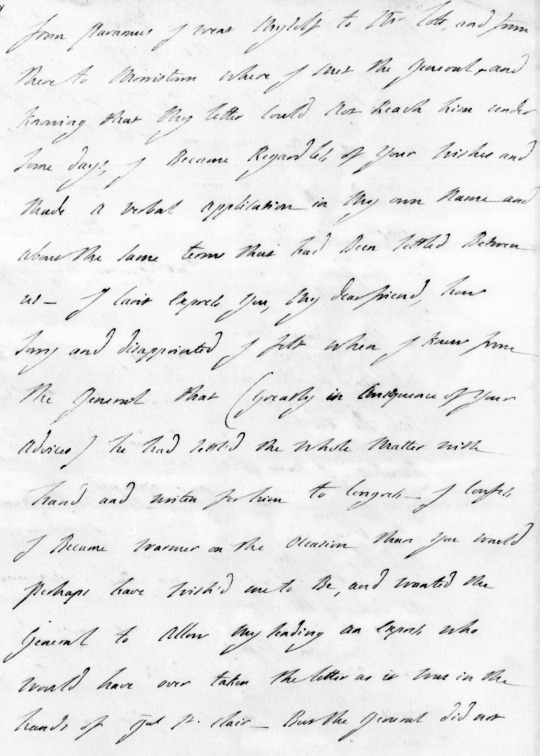 from paramus I went myself to the Cote, and from
there to Morristown where I met the General, and
Knowing that My letter Could Not Reach him under
Some days, I Became Regardless of Your Wishes and
Made a verbal application in My own Name and
about the Same terms that had Been Settled Between
us — I Cann't Express You, My dear friend, how
Sorry and disappointed I felt when I knew from
the General that (Greatly in Consequence of Your
advice) he had Settl'd the Whole Matter with
hand and writen for him to Congress — I Confess
I Became warmer on the Occasion than you would
perhaps have Wish'd me to Be, and wanted the
General to Allow My Sending an Express who
would have over taken the letter as it was in the
hands of Gnl St. Clair — But the General did not